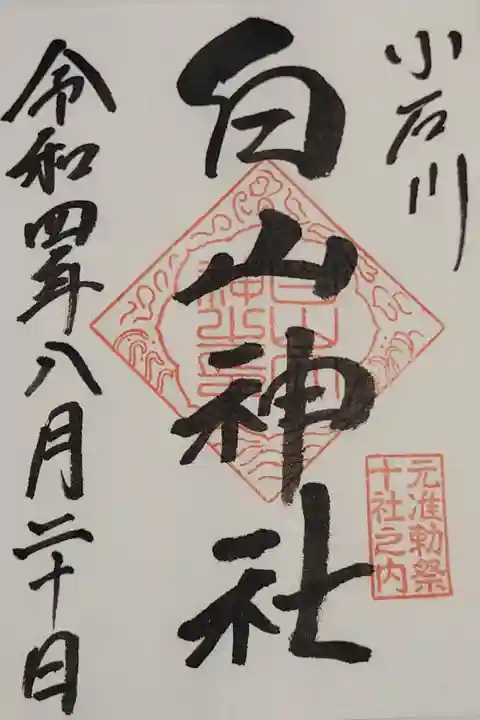 小石川
元准勅祭
十社之内
白山神社
令和四年八月二十日